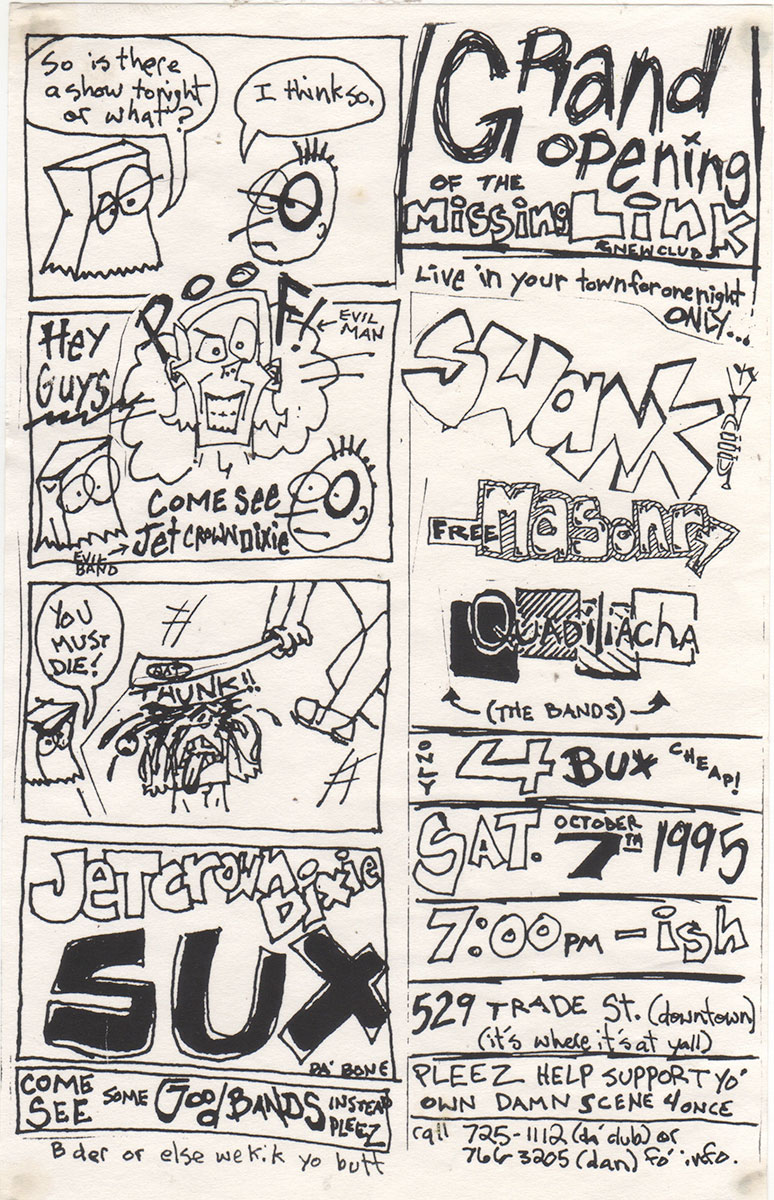 So is there
a show tonight
or what?
I think so.
POOF!
EVIL
MAN
HEY
GUYS
COME SEE
JET CROWN DIXIE
EVIL
BAND
YOU
MUST
DIE!
THUNK!!
JET CROWN
DIXIE
SUX
DA' BONE
COME
SEE
SOME GOOD BANDS INSTEAD
PLEEZ
B der or else we kik yo butt
GRand
opening
OF THE
missing Link
NEW CLUB
Live in your town for one night
ONLY...
SWANK
FREE MASONRY
QUADILIACHA
(THE BANDS)
ONLY
4 BUX CHEAP!
SAT. OCTOBER
7TH 1995
7:00PM - ish
529 TRADE St. (downtown)
(it's where it's at yall)
PLEEZ HELP SUPPORT YO'
OWN DAMN SCENE 4 ONCE
call 725-1112 (da' club) or
766-3205 (dan) fo' info.